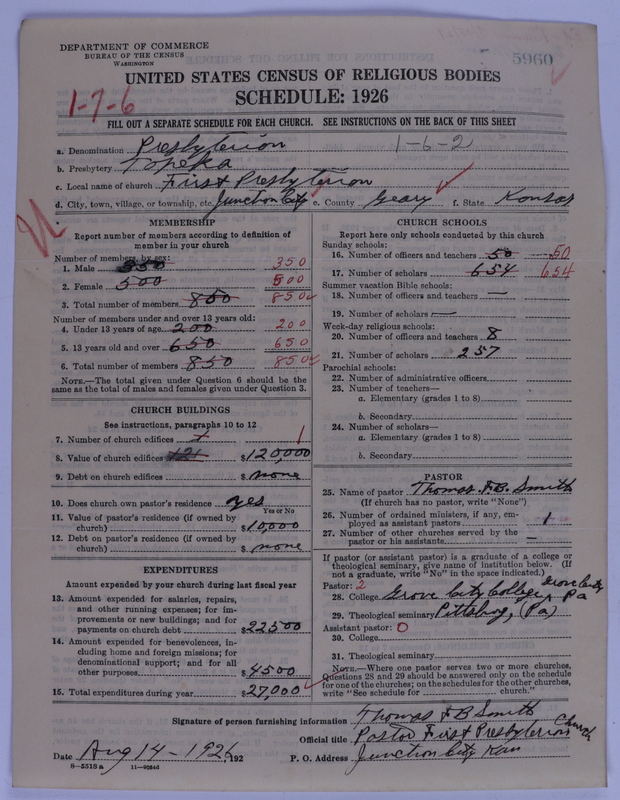 DEPARTMENT OF COMMERCE
BUREAU OF THE CENSUS
WASHINGTON
5960
UNITED STATES CENSUS OF RELIGIOUS BODIES
SCHEDULE: 1926
1-7-6
FILL OUT A SEPARATE SCHEDULE FOR EACH CHURCH. SEE INSTRUCTIONS ON THE BACK OF THIS SHEET
a. Denomination Presbyterian 1-6-2
b. Presbytery Topeka
c. Local name of church First Presbyterian
d. City, town, village, or township, etc. Junction City e. County Geary f. State Kansas
MEMBERSHIP
Report number of members according to definition of
member in your church
Number of members by sex:
1. Male 350 350
2. Female 500 500
3. Total number of members 850 850
Number of members under and over 13 years old:
4. Under 13 years of age 200 200
5. 13 years old and over 650 650
6. Total number of members 850 850
NOTE.—The total given under Question 6 should be the
same as the total of males and females given under Question 3.
CHURCH BUILDINGS
See instructions, paragraphs 10 to 12
7. Number of church edifices 1
8. Value of church edifices $120,000
9. Debt on church edifices $ none
10. Does church own pastor's residence yes
Yes or No
11. Value of pastor's residence (if owned by
church) $10,000
12. Debt on pastor's residence (if owned by
church) $ none
EXPENDITURES
Amount expended by your church during last fiscal year
13. Amount expended for salaries, repairs,
and other running expenses; for im-
provements or new buildings; and for
payments on church debt $22500
14. Amount expended for benevolences, in-
cluding home and foreign missions; for
denominational support; and for all
other purposes $4500
15. Total expenditures during year $27,000
CHURCH SCHOOLS
Report here only schools conducted by this church
Sunday schools:
16. Number of officers and teachers 50 50
17. Number of scholars 654 654
Summer vacation Bible schools:
18. Number of officers and teachers —
19. Number of scholars —
Week-day religious schools:
20. Number of officers and teachers 8
21. Number of scholars 257
Parochial schools:
22. Number of administrative officers
23. Number of teachers—
a. Elementary (grades 1 to 8)
b. Secondary
24. Number of scholars—
a. Elementary (grades 1 to 8)
b. Secondary
PASTOR
25. Name of pastor Thomas F. B. Smith
(If church has no pastor, write "None")
26. Number of ordained ministers, if any, em-
ployed as assistant pastors 1
27. Number of other churches served by the
pastor or his assistants —
If pastor (or assistant pastor) is a graduate of a college or
theological seminary, give name of institution below. (If
not a graduate, write "No" in the space indicated.)
Pastor: 2
28. College Grove City College, Grove City Pa
29. Theological seminary Pittsburg, (Pa)
Assistant pastor: 0
30. College
31. Theological seminary
NOTE.—Where one pastor serves two or more churches,
Questions 28 and 29 should be answered only on the schedule
for one of the churches; on the schedules for the other churches,
write "See schedule for church."
Signature of person furnishing information Thomas F B Smith
Official title Pastor First Presbyterian Church
Date Aug 14-1926, 192 P. O. Address Junction City Kan
8-5518 a